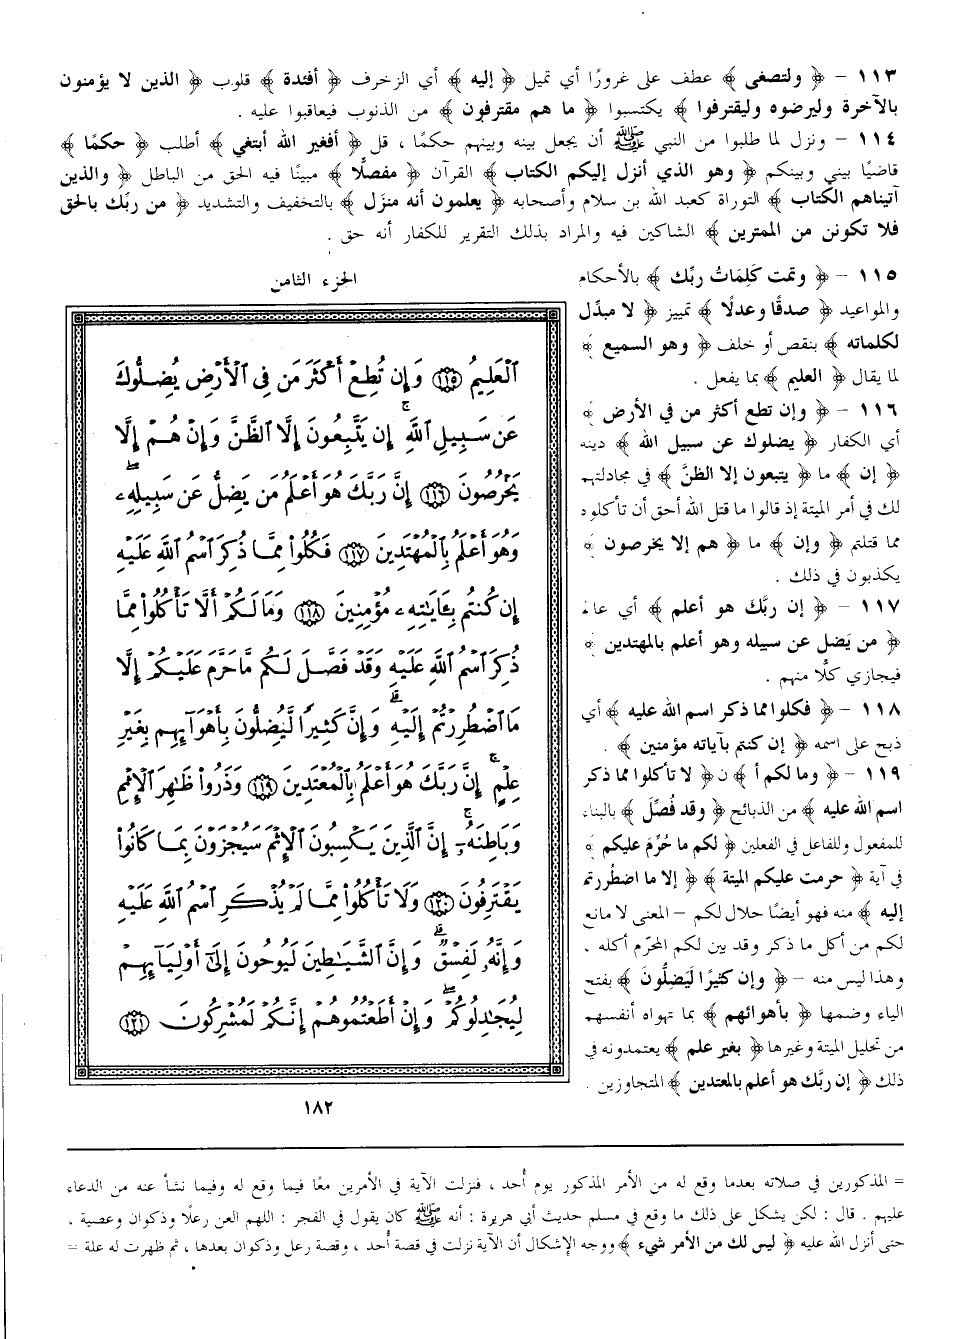 ١١٣ – ﴿ ولتصغى ﴾ عطف على غرورًا أي تميل ﴿ إليه ﴾ أي الزخرف ﴿ أفئدة ﴾ قلوب ﴿ الذين لا يؤمنون
بالآخرة وليرضوه وليقترفوا ﴾ يكتسبوا ﴿ ما هم مقترفون ﴾ من الذنوب فيعاقبوا عليه .
١١٤ – ونزل لما طلبوا من النبي ﷺ أن يجعل بينه وبينهم حكمًا ، قل ﴿ أفغير الله أبتغي ﴾ أطلب ﴿ حكمًا ﴾
قاضيًا بيني وبينكم ﴿ وهو الذي أنزل إليكم الكتاب ﴾ القرآن ﴿ مفصلًا ﴾ مبينًا فيه الحق من الباطل ﴿ والذين
آتيناهم الكتاب ﴾ التوراة كعبد الله بن سلام وأصحابه ﴿ يعلمون أنه منزل ﴾ بالتخفيف والتشديد ﴿ من ربك بالحق
فلا تكونن من الممترين ﴾ الشاكين فيه والمراد بذلك التقرير للكفار أنه حق .
١١٥ – ﴿ وتمت كَلِمَاتُ ربِّك ﴾ بالأحكام
والمواعيد ﴿ صدقًا وعدلًا ﴾ تمييز ﴿ لا مبدِّل
لكلماته ﴾ بنقص أو خلف ﴿ وهو السميع ﴾
لما يقال ﴿ العليم ﴾ بما يفعل .
١١٦ – ﴿ وإن تطع أكثر من في الأرض ﴾
أي الكفار ﴿ يضلوك عن سبيل الله ﴾ دينه
﴿ إن ﴾ ما ﴿ يتبعون إلا الظنَّ ﴾ في مجادلتهم
لك في أمر الميتة إذ قالوا ما قتل الله أحق أن تأكلوه
مما قتلتم ﴿ وإن ﴾ ما ﴿ هم إلا يخرصون ﴾
يكذبون في ذلك .
١١٧ – ﴿ إن ربَّك هو أعلم ﴾ أي عالم
﴿ من يَضل عن سبيله وهو أعلم بالمهتدين ﴾
فيجازي كلًّا منهم .
١١٨ – ﴿ فكلوا مما ذكر اسم الله عليه ﴾ أي
ذبح على اسمه ﴿ إن كنتم بآياته مؤمنين ﴾ .
١١٩ – ﴿ وما لكم أ ﴾ ن ﴿ لا تأكلوا مما ذكر
اسم الله عليه ﴾ من الذبائح ﴿ وقد فُصِّل ﴾ بالبناء
للمفعول وللفاعل في الفعلين ﴿ لكم ما حُرِّم عليكم ﴾
في آية ﴿ حرمت عليكم الميتة ﴾ ﴿ إلا ما اضطُررتم
إليه ﴾ منه فهو أيضًا حلال لكم – المعنى لا مانع
لكم من أكل ما ذكر وقد بين لكم المحرّم أكله ،
وهذا ليس منه – ﴿ وإن كثيرًا ليَضلُّونَ ﴾ بفتح
الياء وضمها ﴿ بأهوائهم ﴾ بما تهواه أنفسهم
من تحليل الميتة وغيرها ﴿ بغير علم ﴾ يعتمدونه في
ذلك ﴿ إن ربَّك هو أعلم بالمعتدين ﴾ المتجاوزين .
الجزء الثامن
ٱلْعَلِيمُ ١١٥ وَإِن تُطِعْ أَكْثَرَ مَن فِى ٱلْأَرْضِ يُضِلُّوكَ
عَن سَبِيلِ ٱللَّهِۚ إِن يَتَّبِعُونَ إِلَّا ٱلظَّنَّ وَإِنْ هُمْ إِلَّا
يَخْرُصُونَ ١١٦ إِنَّ رَبَّكَ هُوَ أَعْلَمُ مَن يَضِلُّ عَن سَبِيلِهِۦۖ
وَهُوَ أَعْلَمُ بِٱلْمُهْتَدِينَ ١١٧ فَكُلُوا۟ مِمَّا ذُكِرَ ٱسْمُ ٱللَّهِ عَلَيْهِ
إِن كُنتُم بِـَٔايَـٰتِهِۦ مُؤْمِنِينَ ١١٨ وَمَا لَكُمْ أَلَّا تَأْكُلُوا۟ مِمَّا
ذُكِرَ ٱسْمُ ٱللَّهِ عَلَيْهِ وَقَدْ فَصَّلَ لَكُم مَّا حَرَّمَ عَلَيْكُمْ إِلَّا
مَا ٱضْطُرِرْتُمْ إِلَيْهِۗ وَإِنَّ كَثِيرًا لَّيُضِلُّونَ بِأَهْوَآئِهِم بِغَيْرِ
عِلْمٍۚ إِنَّ رَبَّكَ هُوَ أَعْلَمُ بِٱلْمُعْتَدِينَ ١١٩ وَذَرُوا۟ ظَـٰهِرَ ٱلْإِثْمِ
وَبَاطِنَهُۥٓۚ إِنَّ ٱلَّذِينَ يَكْسِبُونَ ٱلْإِثْمَ سَيُجْزَوْنَ بِمَا كَانُوا۟
يَقْتَرِفُونَ ١٢٠ وَلَا تَأْكُلُوا۟ مِمَّا لَمْ يُذْكَرِ ٱسْمُ ٱللَّهِ عَلَيْهِ
وَإِنَّهُۥ لَفِسْقٌۗ وَإِنَّ ٱلشَّيَـٰطِينَ لَيُوحُونَ إِلَىٰٓ أَوْلِيَآئِهِمْ
لِيُجَـٰدِلُوكُمْۖ وَإِنْ أَطَعْتُمُوهُمْ إِنَّكُمْ لَمُشْرِكُونَ ١٢١
١٨٢
= المذكورين في صلاته بعدما وقع له من الأمر المذكور يوم أُحد ، فنزلت الآية في الأمرين معًا فيما وقع له وفيما نشأ عنه من الدعاء
عليهم . قال : لكن يشكل على ذلك ما وقع في مسلم حديث أبي هريرة : أنه ﷺ كان يقول في الفجر : اللهم العن رعلًا وذكوان وعصية .
حتى أنزل الله عليه ﴿ ليس لك من الأمر شيء ﴾ ووجه الإشكال أن الآية نزلت في قصة أُحد ، وقصة رعل وذكوان بعدها ، ثم ظهرت له علة =